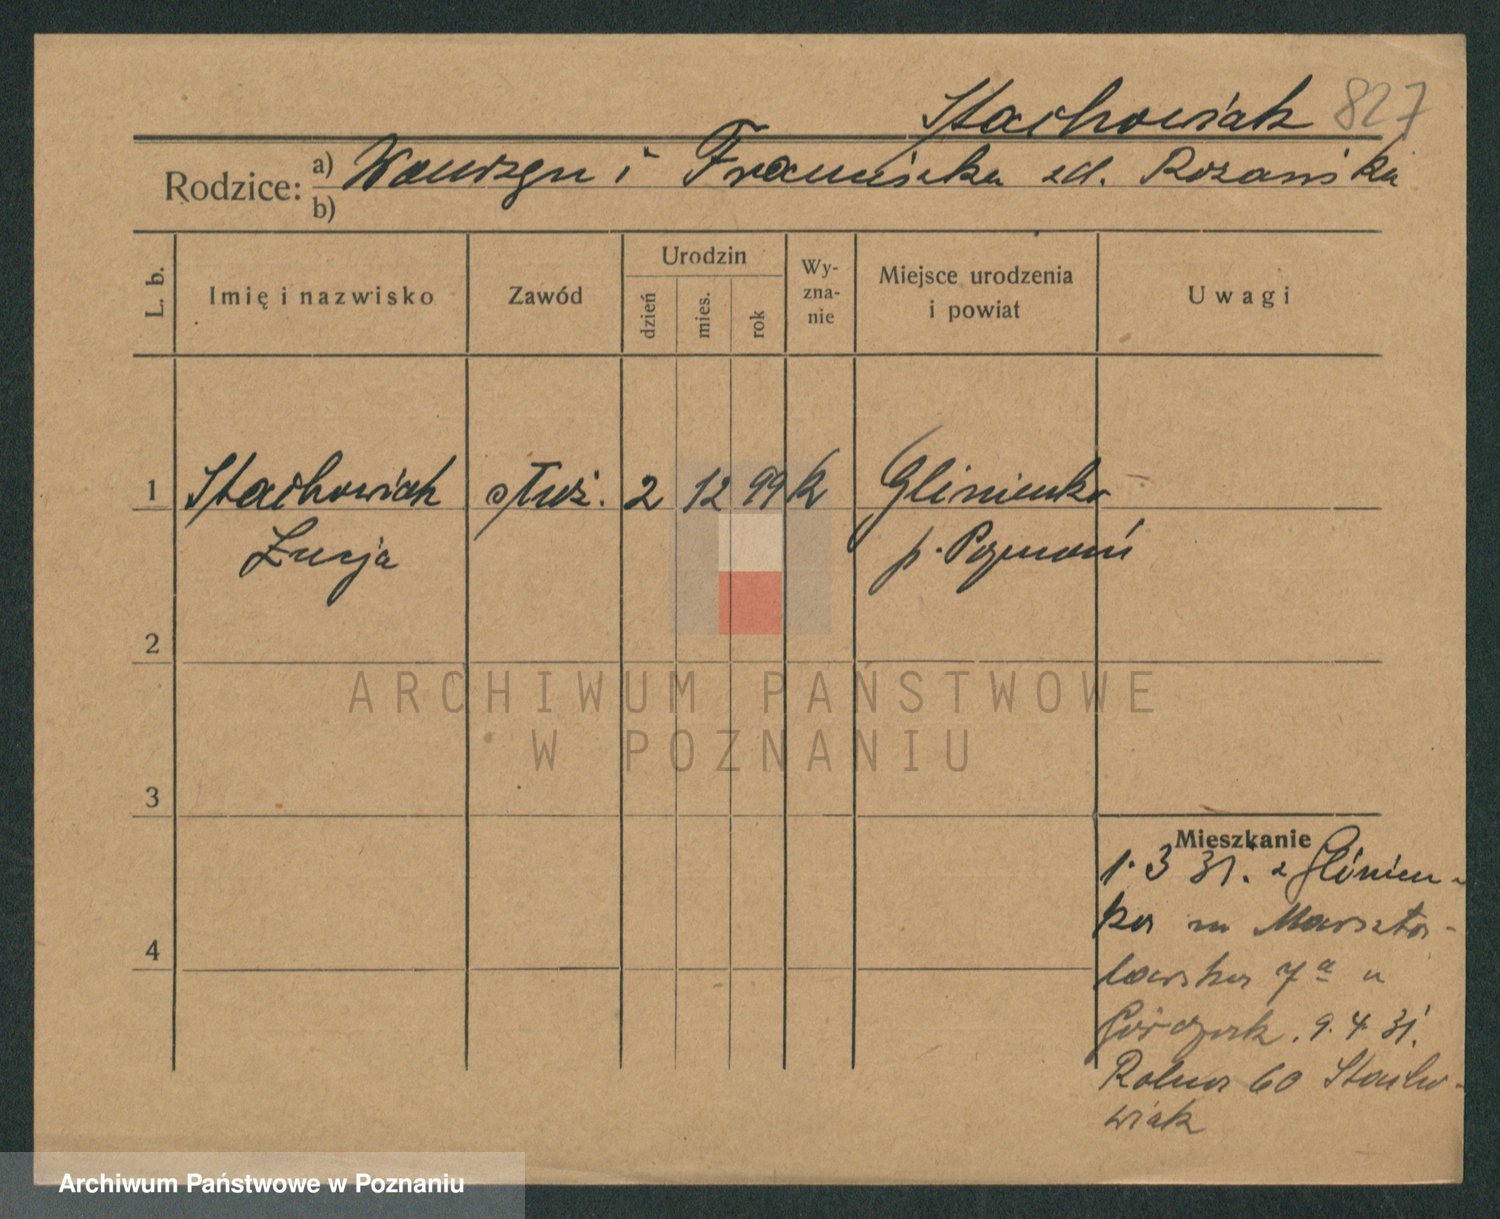 Stachowiak 827
Rodzice: a) Wawrzyn i Franciszka zd. Różańska
b)
L. b.
Imię i nazwisko
Zawód
Urodzin
dzień
mies.
rok
Wy-
zna-
nie
Miejsce urodzenia
i powiat
Uwagi
1 Stachowiak służ. 2 12 99 k Glinienko
Łucja p. Poznań
2
3
4
ARCHIWUM PAŃSTWOWE
W POZNANIU
Mieszkanie
1. 3 31. z Glinien-
ka na
7a u
Górczak. 9. 4. 31.
Rolna 60 Stacho-
wiak
Archiwum Państwowe w Poznaniu